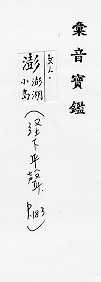 彙音寶鑑
澎 澎湖
小島
(又注下平聲 P.183)